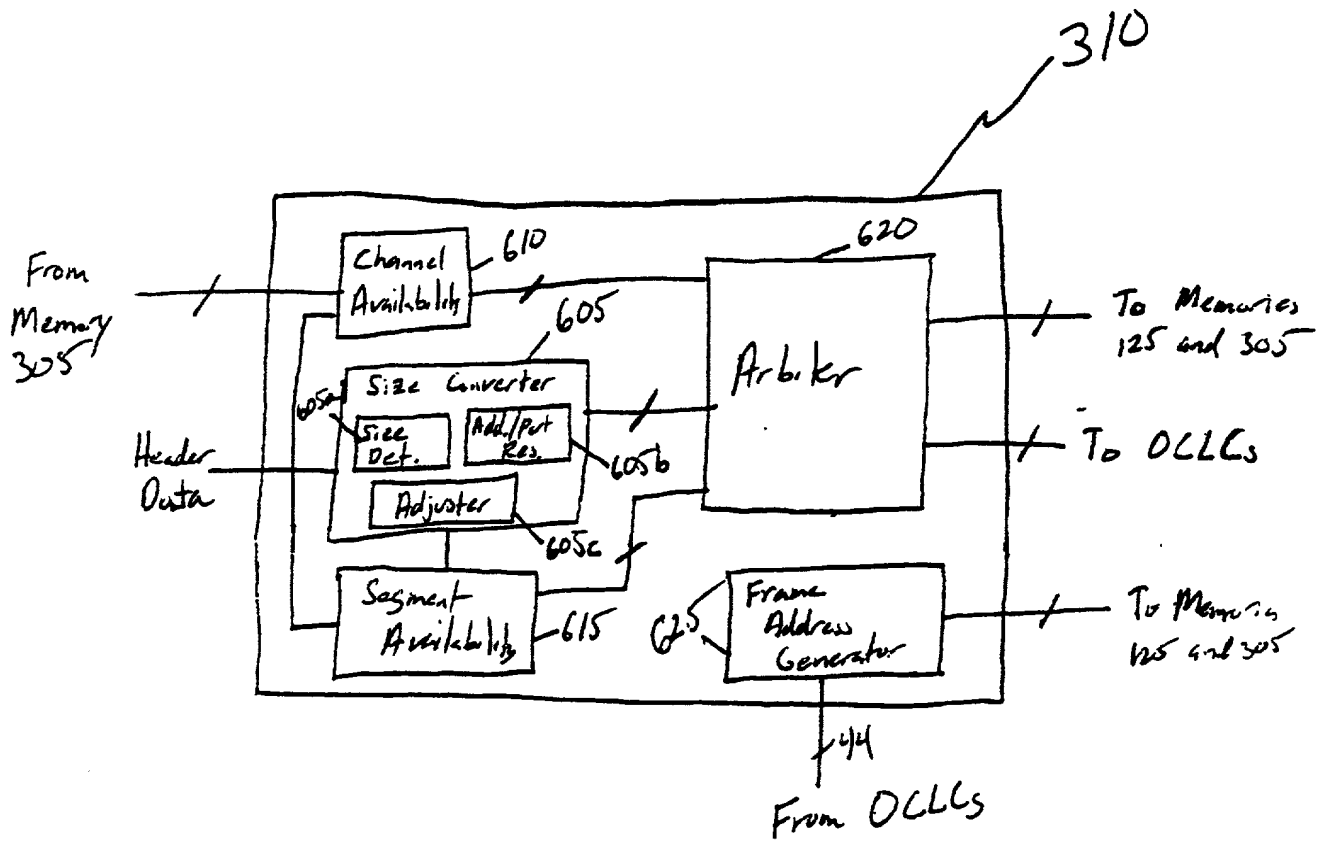 310
From
Memory
305
Channel
Availability
610
620
To Memories
125 and 305
605
Size Converter
605a
Size
Det.
Add./Port
Res.
605b
Adjuster
605c
Arbiter
To OCLCs
Header
Data
Segment
Availability
615
625
Frame
Address
Generator
To Memories
125 and 305
44
From OCLCs